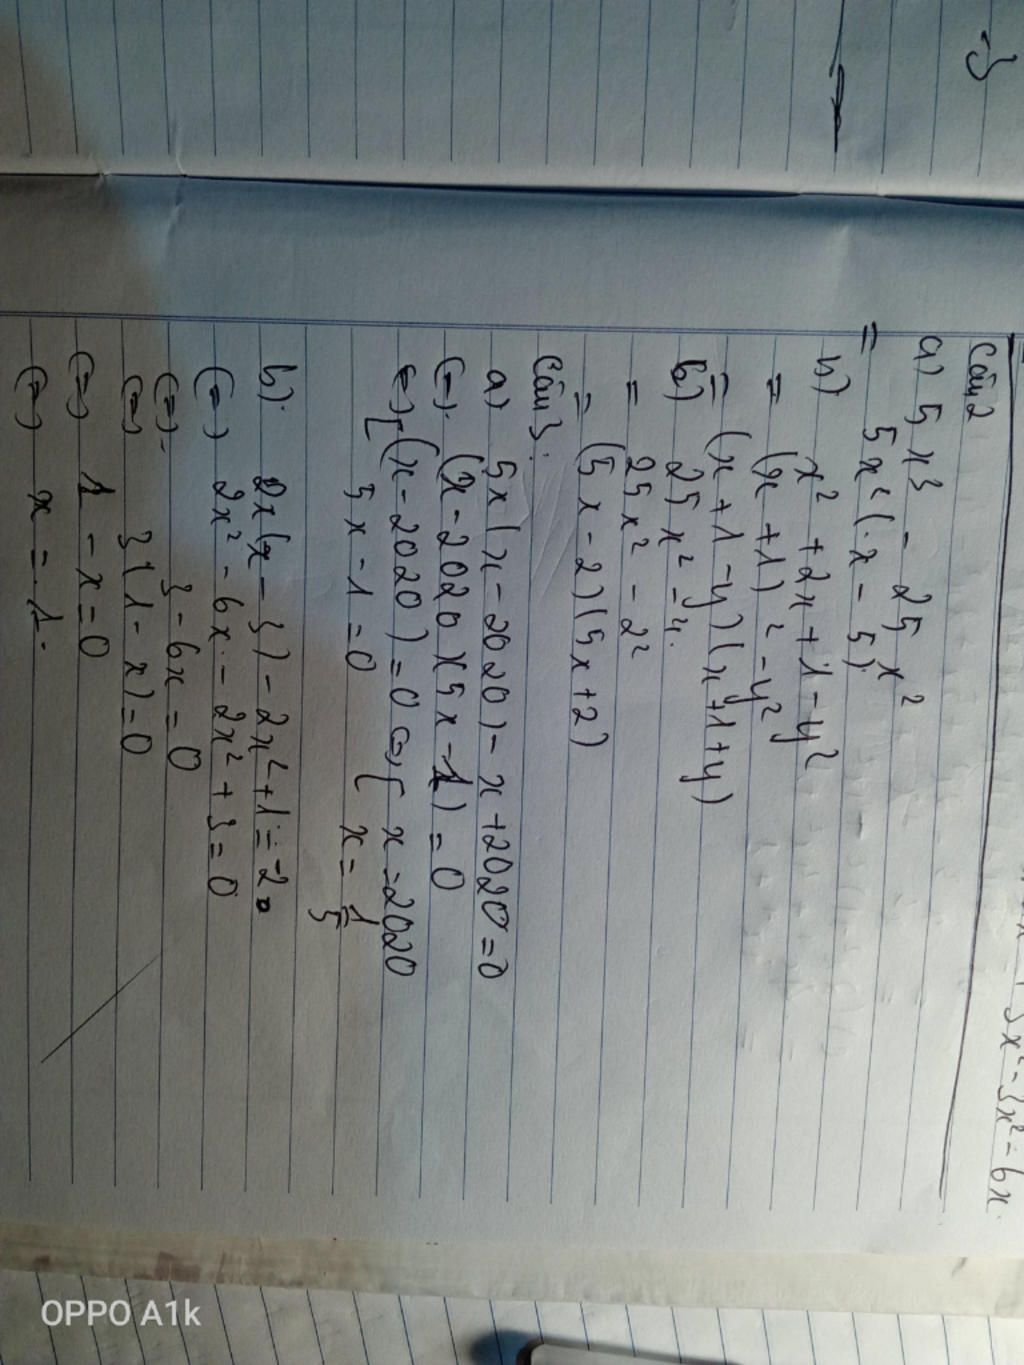 -3
+ 3x² - 3x² - 6x.
Câu 2
a) 5x³ - 25x²
= 5x²(x - 5).
b) x² + 2x + 1 - y²
= (x + 1)² - y²
= (x + 1 - y)(x + 1 + y)
b) 25x² - 4.
= 25x² - 2²
= (5x - 2)(5x + 2)
Câu 3:
a) 5x(x - 2020) - x + 2020 = 0
(=). (x - 2020)(5x - 1) = 0
(=) [ (x - 2020) = 0 (=) [ x = 2020
5x - 1 = 0 [ x = 1/5
b). 2x(x - 3) - 2x² + 1 = -2.
(=) 2x² - 6x - 2x² + 3 = 0
(=). 3 - 6x = 0
(=) 3(1 - x) = 0
(=) 1 - x = 0
(=) x = 1.
OPPO A1k